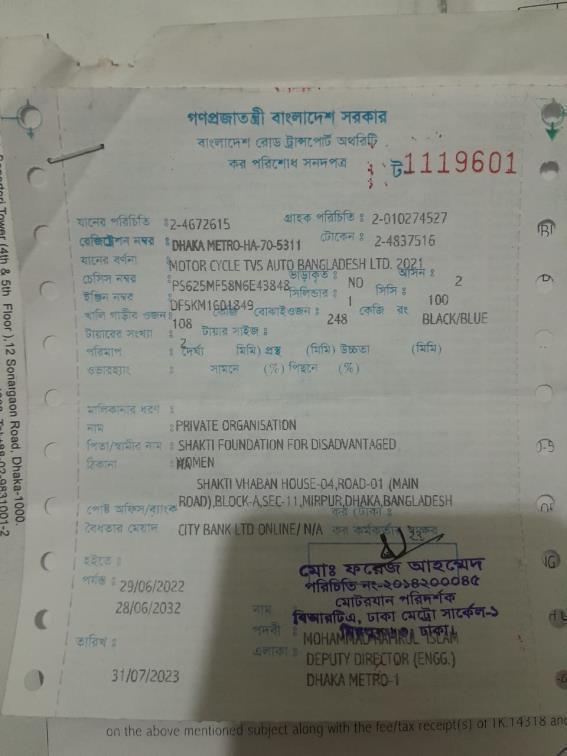 গণপ্রজাতন্ত্রী বাংলাদেশ সরকার
বাংলাদেশ রোড ট্রান্সপোর্ট অথরিটি
কর পরিশোধ সনদপত্র
ট 1119601
যানের পরিচিতি : 2-4672615 গ্রাহক পরিচিতি : 2-010274527
রেজিস্ট্রেশন নম্বর : DHAKA METRO-HA-70-5311 টোকেন : 2-4837516
যানের বর্ণনা : MOTOR CYCLE TVS AUTO BANGLADESH LTD. 2021
চেসিস নম্বর : PS625MF58N6E43848 ভাড়াকৃত : NO আসন : 2
ইঞ্জিন নম্বর : DF5KM1604849 সিলিন্ডার : 1 সিসি : 100
খালি গাড়ীর ওজন : 108 কেজি বোঝাই ওজন : 248 কেজি রং BLACK/BLUE
টায়ারের সংখ্যা : 2 টায়ার সাইজ :
পরিমাপ : দৈর্ঘ্য (মিমি) প্রস্থ (মিমি) উচ্চতা (মিমি)
ওভারহ্যাং : সামনে (%) পিছনে (%)
মালিকানার ধরণ :
নাম : PRIVATE ORGANISATION
পিতা/স্বামীর নাম : SHAKTI FOUNDATION FOR DISADVANTAGED
ঠিকানা : WOMEN
SHAKTI VHABAN HOUSE-04,ROAD-01 (MAIN
ROAD),BLOCK-A,SEC-11,MIRPUR,DHAKA,BANGLADESH
পোষ্ট অফিস/ব্যাংক কর (টাকা) :
বৈধতার মেয়াদ CITY BANK LTD ONLINE/ N/A কর কর্মকর্তার
হইতে :
মোঃ ফয়েজ আহমেদ
পর্যন্ত : 29/06/2022
পরিচিতি নং-২০১৪২০০০৪৫
মোটরযান পরিদর্শক
28/06/2032 নাম
বিআরটিএ, ঢাকা মেট্রো সার্কেল-১
ঢাকা।
পদবী : ISLAM
তারিখ : এলাকা : DEPUTY DIRECTOR (ENGG.)
31/07/2023 DHAKA METRO-1
Tower (4th & 5th Floor ),12 Sonargaon Road, Dhaka-1000.
on the above mentioned subject along with the fee/tax receipt(s) of 1K.14318 and